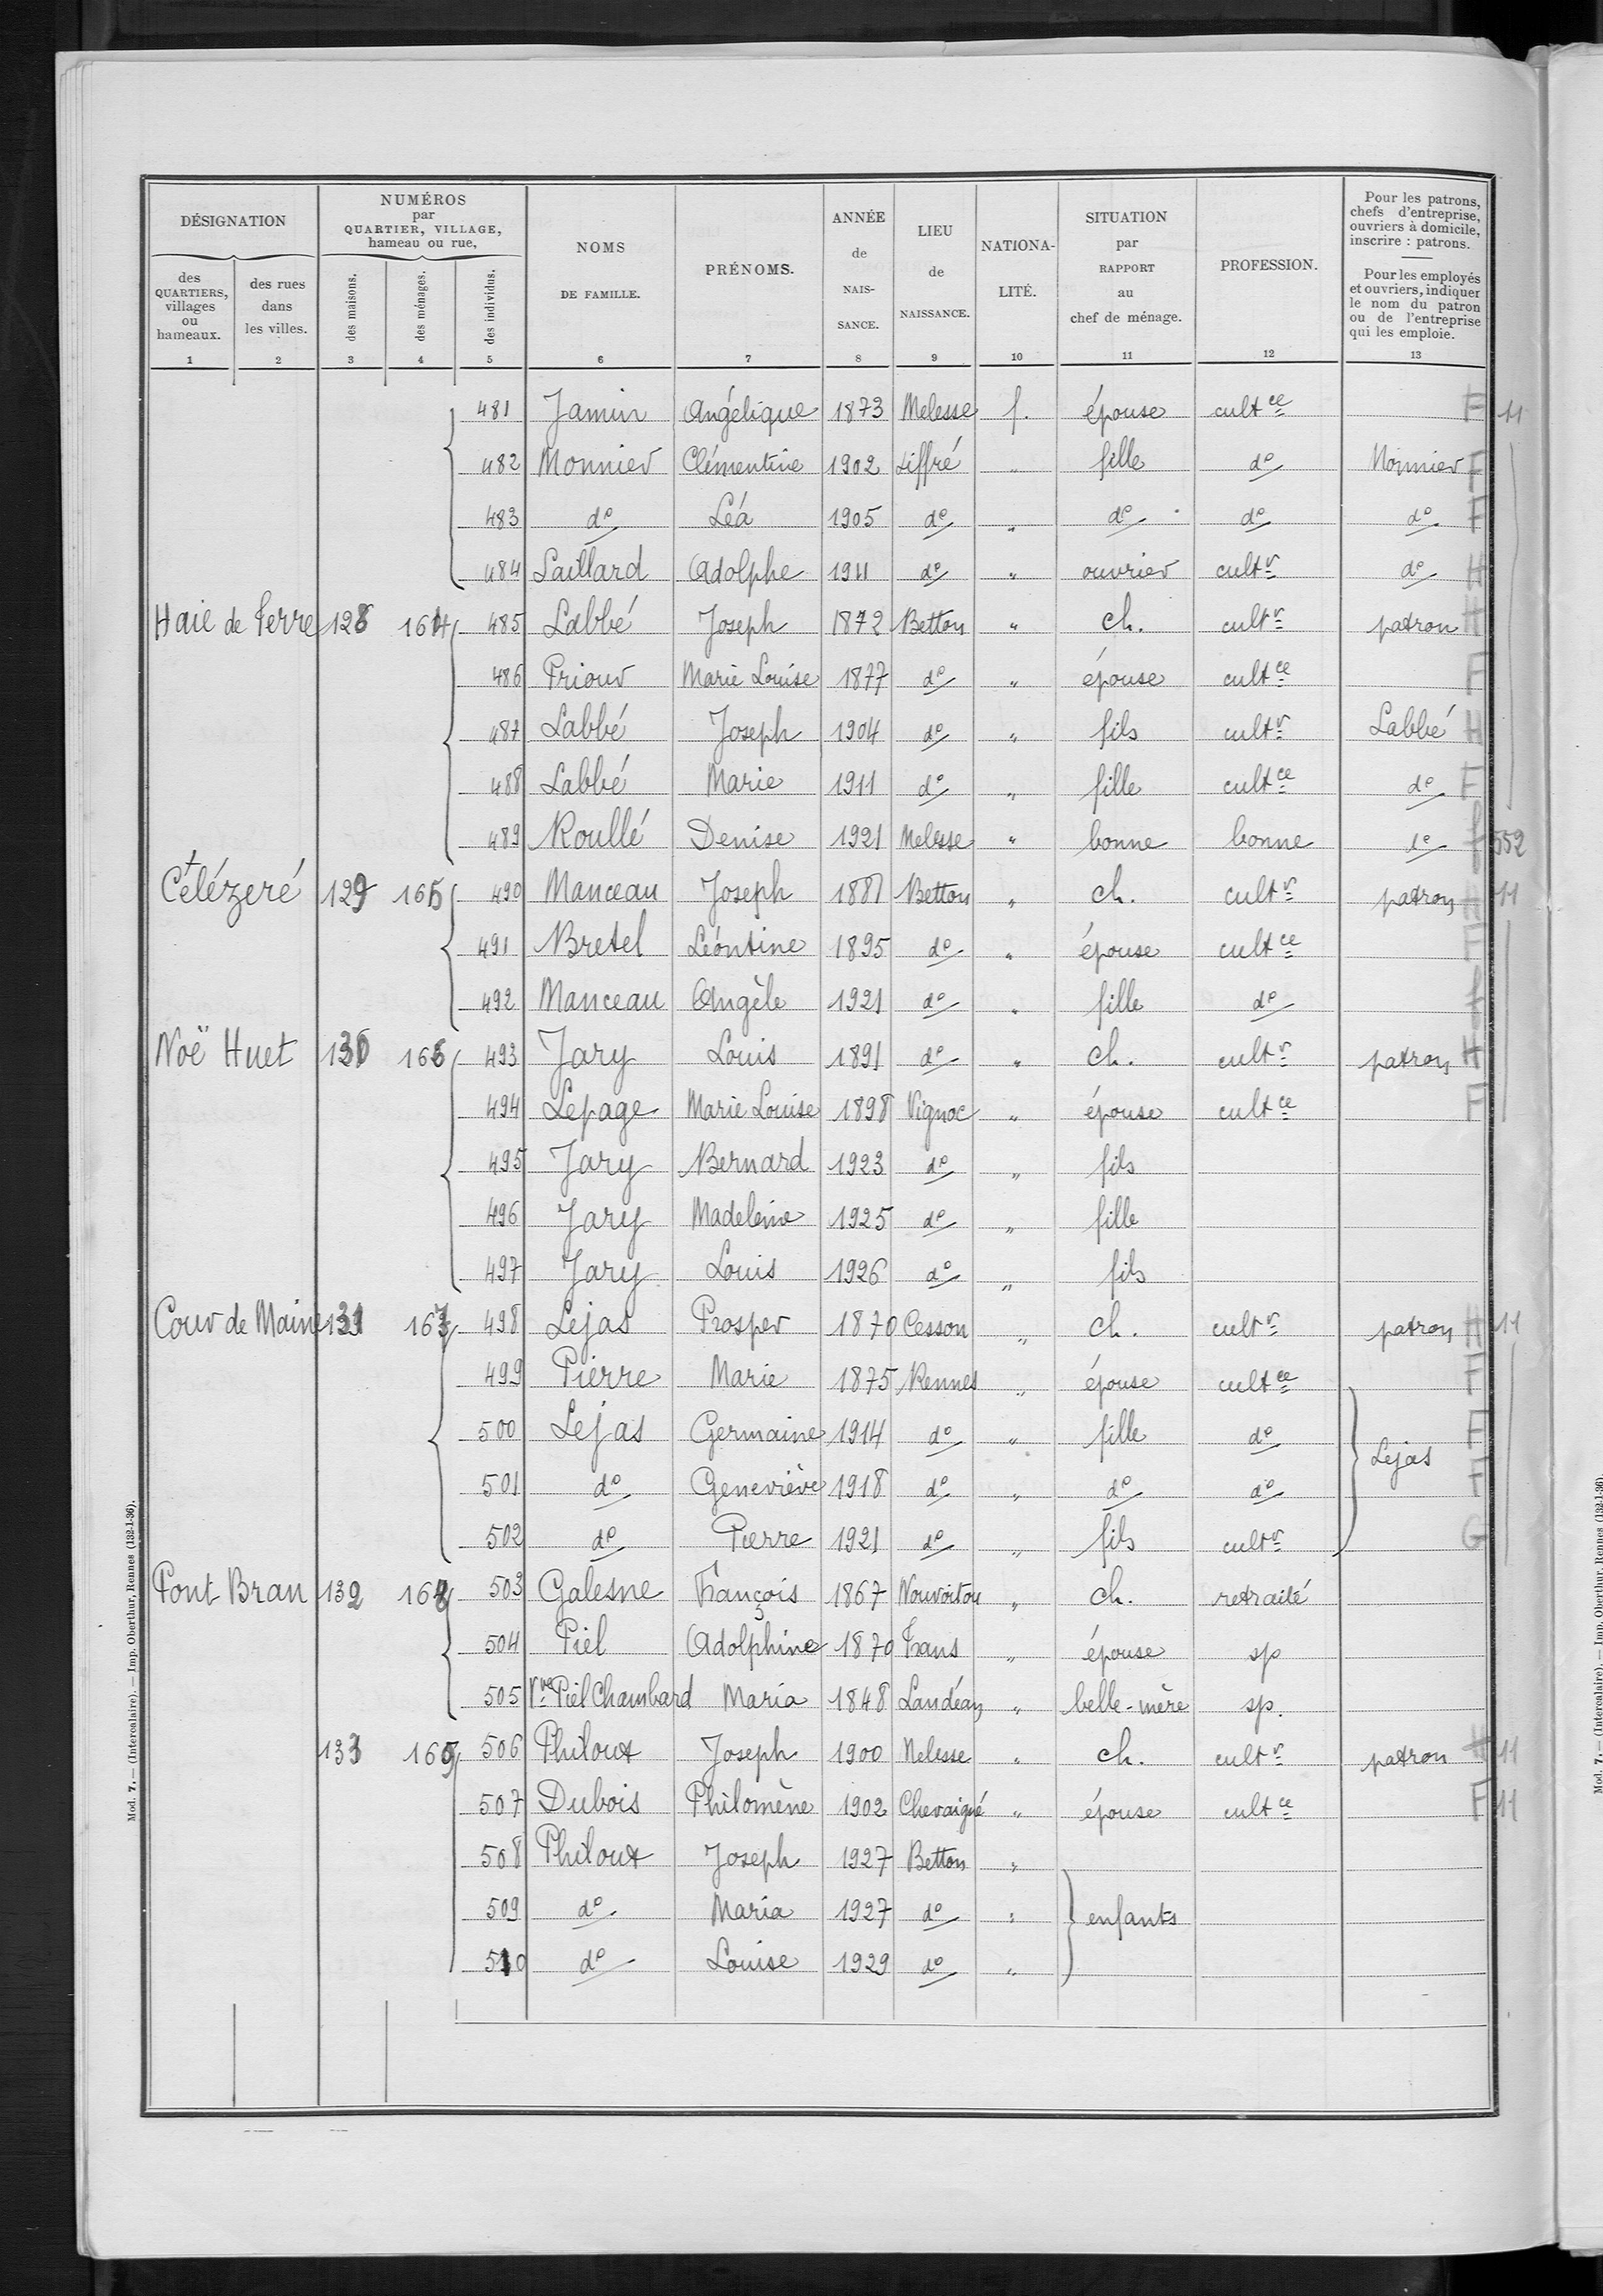 DÉSIGNATION
des QUARTIERS, villages ou hameaux.
des rues dans les villes.
NUMÉROS par QUARTIER, VILLAGE, hameau ou rue,
des maisons.
des ménages.
des individus.
NOMS DE FAMILLE.
PRÉNOMS.
ANNÉE de NAIS-SANCE.
LIEU de NAISSANCE.
NATIONA-LITÉ.
SITUATION par RAPPORT au chef de ménage.
PROFESSION.
Pour les patrons, chefs d'entreprise, ouvriers à domicile, inscrire : patrons.
Pour les employés et ouvriers, indiquer le nom du patron ou de l'entreprise qui les emploie.
1 2 3 4 5 6 7 8 9 10 11 12 13
481 Jamin Angélique 1873 Melesse f. épouse cultce F 11
482 Monnier Clémentine 1902 Liffré " fille do Monnier F
483 do Léa 1905 do " do do do F
484 Saillard Adolphe 1911 do " ouvrier cultr do H
Haie de Terre 128 164 485 Labbé Joseph 1872 Betton " ch. cultr patron H
486 Priour Marie Louise 1877 do " épouse cultce F
487 Labbé Joseph 1904 do " fils cultr Labbé H
488 Labbé Marie 1911 do " fille cultce do F
489 Roullé Denise 1921 Melesse " bonne bonne do f 552
Célézeré 129 165 490 Manceau Joseph 1881 Betton " ch. cultr patron H 11
491 Bretel Léontine 1895 do " épouse cultce F
492 Manceau Angèle 1921 do " fille do f
Noë Huet 130 166 493 Jary Louis 1891 do " ch. cultr patron H
494 Lepage Marie Louise 1898 Vignoc " épouse cultce F
495 Jary Bernard 1923 do " fils
496 Jary Madeleine 1925 do " fille
497 Jary Louis 1926 do " fils
Cour de Maine 131 167 498 Lejas Prosper 1870 Cesson " ch. cultr patron H 11
499 Pierre Marie 1875 Rennes " épouse cultce F
500 Lejas Germaine 1914 do " fille do F
Lejas
501 do Geneviève 1918 do " do do F
502 do Pierre 1921 do " fils cultr G
Pont Bran 132 168 503 Galesne François 1867 Nouvoitou " ch. retraité
504 Piel Adolphine 1870 Trans " épouse sp
505 Vve Piel Chambard Maria 1848 Landéan " belle-mère sp.
133 169 506 Philoux Joseph 1900 Melesse " ch. cultr patron H 11
507 Dubois Philomène 1902 Chevaigné " épouse cultce F 11
508 Philoux Joseph 1927 Betton "
509 do Maria 1927 do " enfants
510 do Louise 1929 do "
Mod. 7. — (Intercalaire). — Imp. Oberthur, Rennes (132-1-36).
Mod. 7. — (Intercalaire). — Imp. Oberthur, Rennes (132-1-36).